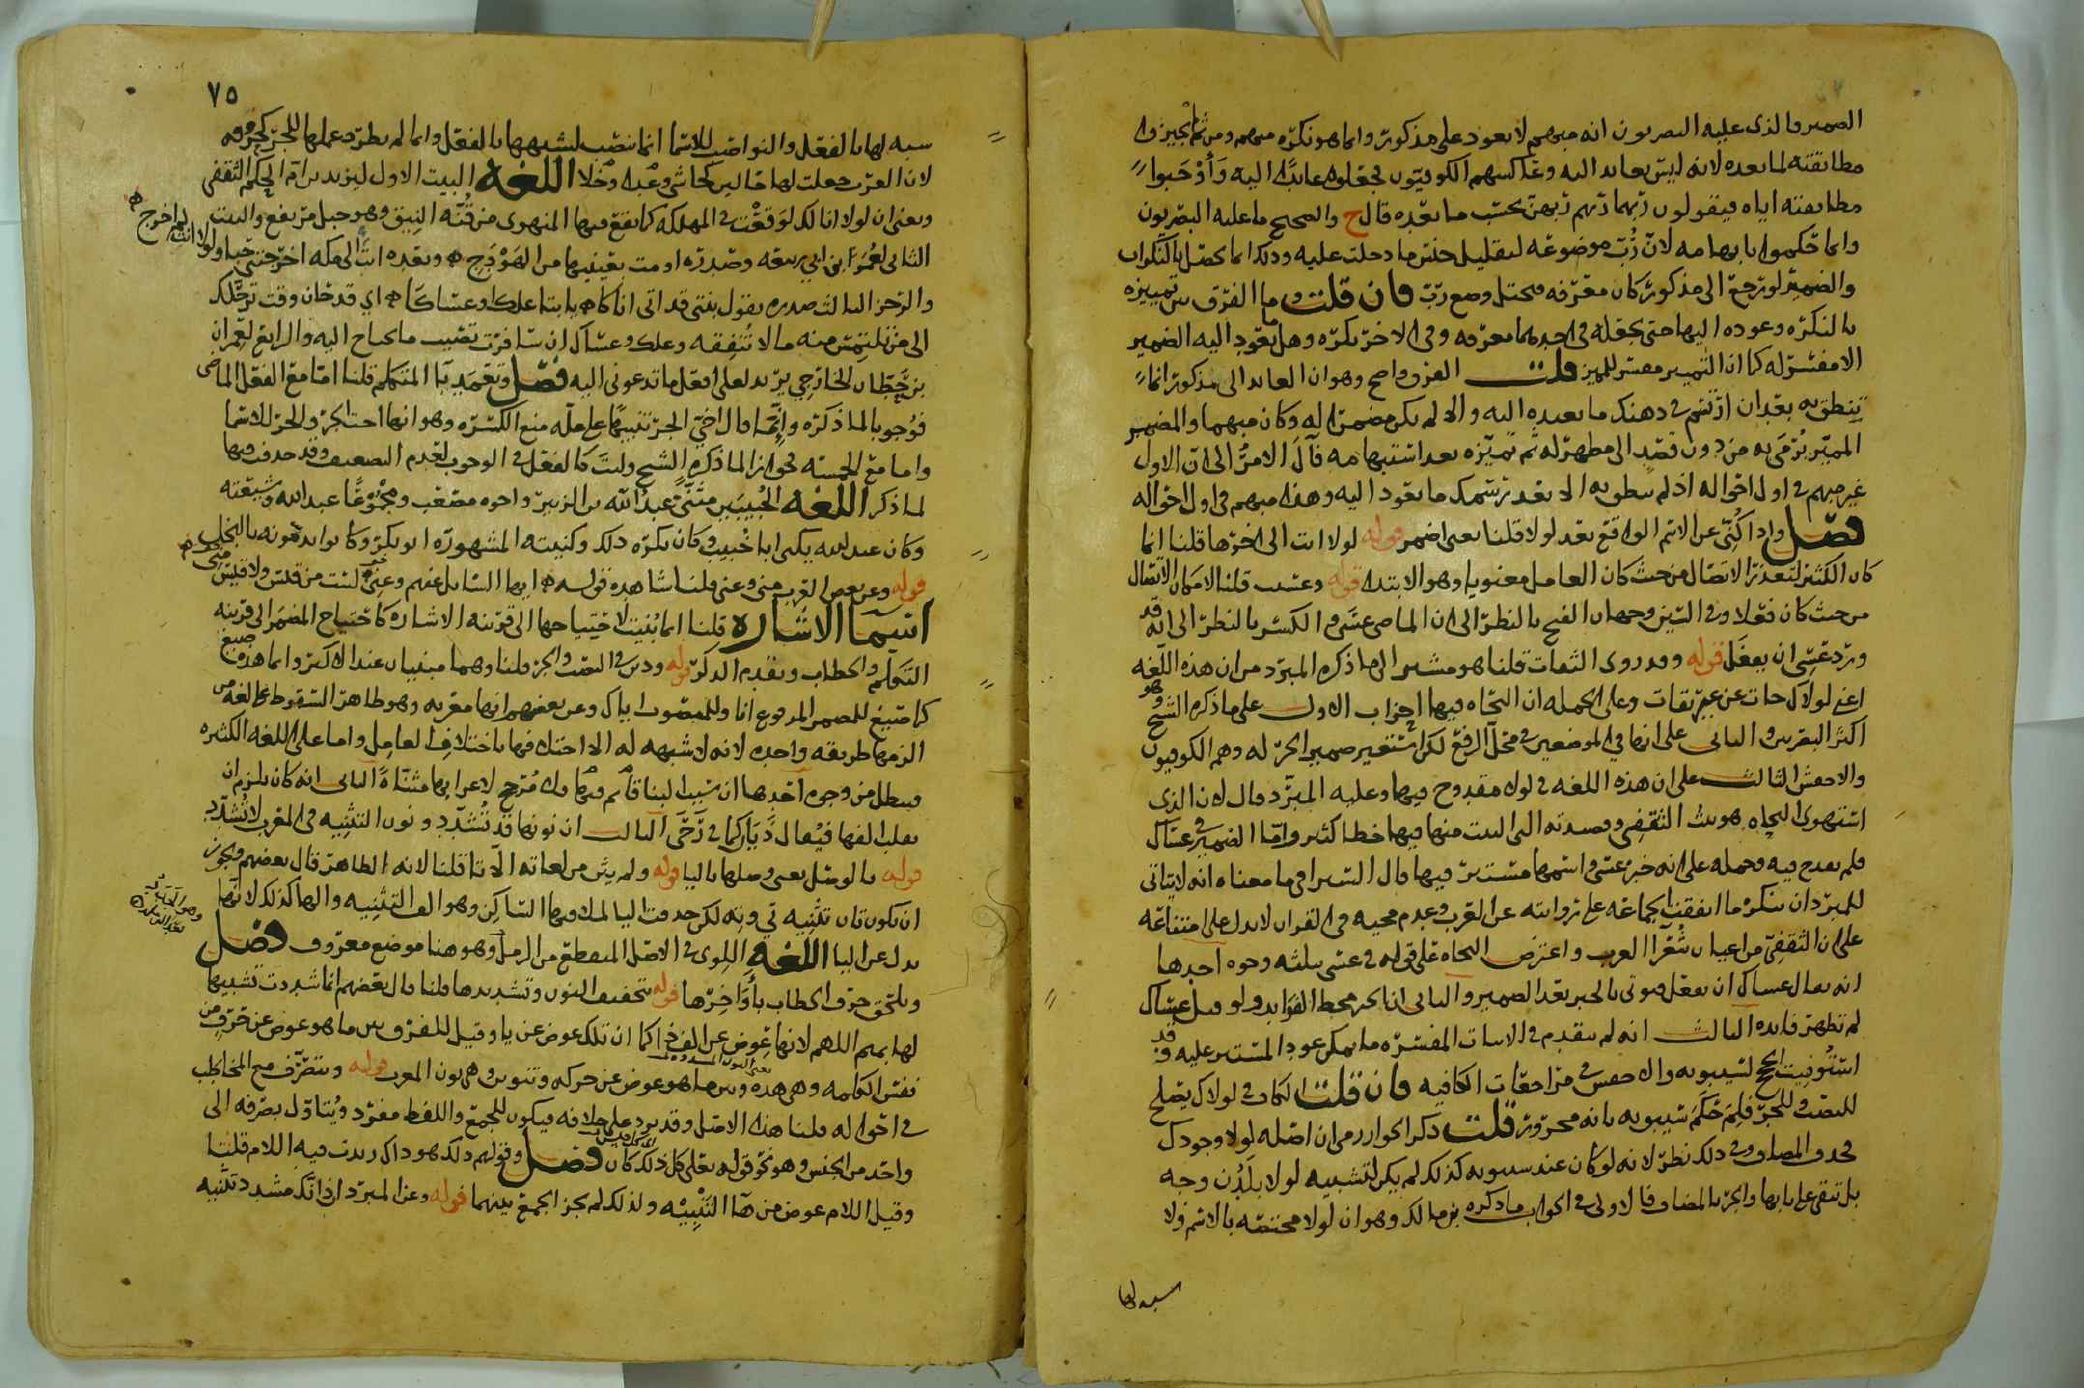 الضمير والذي عليه البصريون انه مبهم لا يعود على مذكور وانما هو نكره مبهم ومن ثم لم يجيزوا
مطابقته لما بعده لانه ليس بعائد اليه وعاكسهم الكوفيون فجعلوه عائدا اليه وأوجبوا
مطابقته اياه فيقولون ربهما ربهم ربهن بحسب ما بعده قال ح والصحيح ما عليه البصريون
وانما حكموا بابهامه لان رب موضوعه لتقليل جنس ما دخلت عليه وذلك انما يحصل بالنكرات
والضمير لو رجع الى مذكور كان معرفه فيختل وضع رب فان قلت وما الفرق بين تمييزه
بالنكره وعوده اليها حتى يجعله في احدهما معرفه وفي الاخر نكره وهل ما يعود اليه الضمير
الا مفسر له كما ان التمييز مفسر للمميز قلت الفرق واضح وهو ان العائد الى مذكور انما
ينطق به بعد ان ارتسم في ذهنك ما تعيده اليه والا لم يكن مضمرا له وكان مبهما والمضمر
المميز يرمى به من دون قصد الى مظهر له ثم تميزه بعد استبهامه فآل الامر الى ان الاول
غير مبهم في اول احواله اذ لم ينطق به الا بعد ترسمك ما يعود اليه وهذا مبهم في اول احواله
فصل واذا كني عن الاسم الواقع بعد لولا قلنا يعني اضمر قوله لولا انت الى اخرها قلنا انما
كان الكثير لتعذر الاتصال من حيث كان العامل معنويا وهو الابتدا قوله وعسيت قلنا لامكان الاتصال
من حيث كان فعلا وفي السين وجهان الفتح بالنظر الى ان الماضي عسى والكسر بالنظر الى انه قد
ورد عسي ان يفعل قوله وقد روى الثقات قلنا هو مشير الى ما ذكره المبرد من ان هذه اللغه
اعني لولاك جات عن غير ثقات وعلى الجمله ان النحاه فيها احزاب الاول على ما ذكره الشيخ وهو
اكثر البصريين والثاني على انها في الموضعين في محل الرفع لكن استعير ضمير الجر له وهم الكوفيون
والاخفش الثالث على ان هذه اللغه في لولاك مقدوح فيها وعليه المبرد قال لان الذي
استهوى النحاه هو بيت الثقفي وقصيدته التي البيت منها فيها خطا كثير واما الضمير في عساك
فلم يقدح فيه وحمله على انه خبر عسى واسمها مستتر فيها قال السيرافي ما معناه انه لا يتاتى
للمبرد ان ينكر ما اتفقت الجماعه على روايته عن العرب وعدم مجيه في القران لا يدل على امتناعه
على ان الثقفي من اعيان شعرا العرب واعترض النحاه على قوله في عسى بثلثه وجوه احدها
انه يقال عساك ان تفعل فيوتى بالخبر بعد الضمير والثاني ان الخبر محط الفوايد ولو قيل عساك
لم تظهر فايده الثالث انه لم يتقدم في الابيات المفسره ما يمكن عود المستتر عليه وقد
استوفيت الحج لسيبويه والاخفش في مراجعات الكافيه فان قلت الكاف في لولاك يصلح
للنصب وللجر فلم حكم سيبويه بانه مجرور قلت ذكر الخوارزمي ان اصله لولا وجودك
فحذف المضاف وفي ذلك نظر لانه لو كان عند سيبويه كذلك لم يكن لتشبيه لولا بلدن وجه
بل تبقى على بابها والجر بالمضاف فالاولى في الجواب ما ذكره بن مالك وهو ان لولا مختصه بالاسم ولا
سبه لها
٧٥
سبه لها بالفعل والنواصب للاسما انما تنصب لشبهها بالفعل وانما لم يطرد عملها للجر كحروفه
لان العرب جعلت لها حالين كحاشى وعدا وخلا اللغه البيت الاول ليزيد بن ام الحكم الثقفي
ومعنى ان لولا انا لك لوقعت في المهلكه كما يقع فيها المنهوى من قنه النيق وهو جبل مرتفع والبيت
الثاني لعمر ابن ابي ربيعه وصدره اومت بعينيها من الهودج وبعده انت الى مكه اخرجتني حبا ولولا انت لم اخرج
والرجز الثالث صدره تقول بنتي قد انى اناكا يا ابتا علك او عساكا اي قد حان وقت ترحلك
الى من تلتمس منه مالا تنفقه وعلك وعساك ان سافرت تصيب ما تحتاج اليه والرابع لعمران
بن حطان الخارجي يريد لعلي افعل ما تدعوني اليه فصل وتعمد يا المتكلم قلنا اما مع الفعل الماضي
فوجوبا لما ذكره وانما قال اخي الجر تنبيها على عله منع الكسره وهو انها اخت الجر والجر للاسما
واما مع الخمسه فجوازا لما ذكره الشيخ وليت كالفعل في الوجوب لعدم التضعيف وقد حذفت فيها
لما ذكر اللغه الخبيبين مثنى عبد الله بن الزبير واخوه مصعب ومجموعا عبد الله وشيعته
وكان عبد الله يكنى ابا خبيب وكان يكره ذلك وكنيته المشهوره ابو بكر وكانوا يذمونه بالبخل
قوله وعن بعض العرب مني وعني قلنا شاهده قوله ايها السايل عنهم وعني لست من قيس ولا قيس مني
اسما الاشاره قلنا انما بنيت لاحتياجها الى قرينه الاشاره كاحتياج المضمر الى قرينه
التكلم والخطاب وتقدم الذكر قوله وذين في النصب والجر قلنا وهما مبنيان عند الاكثر وانما هذه صيغ
كما صيغ للضمير المرفوع انا وللمنصوب اياك وعن بعضهم انها معربه وهو ظاهر السقوط مخالفه من
الزمها طريقه واحده لانه لا شبهه له الا اختلافها باختلاف العامل واما على اللغه الكثيره
فيبطل من وجوه احدها ان سبب البنا قايم فيها ولا مرجح لاعرابها مثناه الثاني انه كان يلزم ان
يقلب الفها فيقال ذيان كما في رحى الثالث ان نونها قد تشدد ونون التثنيه في المعرب لا تشدد
قوله بالوصل يعني وصلها باليا قوله ولم يثن من لغاته الا تا قلنا لانه الظاهر قال بعضهم ويجوز
ان تكون تان تثنيه تي وته لكن حذفت اليا لملاقيها الساكن وهو الف التثنيه والها كذلك لانها
بدل عن اليا اللغه اللوى في الاصل المنعطف من الرمل وهو هنا موضع معروف فصل
وتلحق حرف الخطاب بأواخرها قوله بتخفيف النون وتشديدها قلنا قال بعضهم انما شددت تشبيها
لها بميم اللهم لانها عوض عن الف ذا كما ان تلك عوض عن يا وقيل للفرق بين ما هو عوض عن حرف من
نفس الكلمه وهي هذه وبين ما هو عوض عن حركه وتنوين وهي نون المعرب قوله ويتصرف مع المخاطب
في احواله قلنا هذا الاصل وقد يرد على خلافه فيكون للجمع واللفظ مفرد ويتاول بصرفه الى
واحد من الجنس وهو نحو قوله تعالى كل ذلك كان فصل وقولهم ذلك هو ذاك زيدت فيه اللام قلنا
وقيل اللام عوض من ها التنبيه ولذلك لم يجز الجمع بينهما قوله وعن المبرد ان ذانك مشدد تثنيه